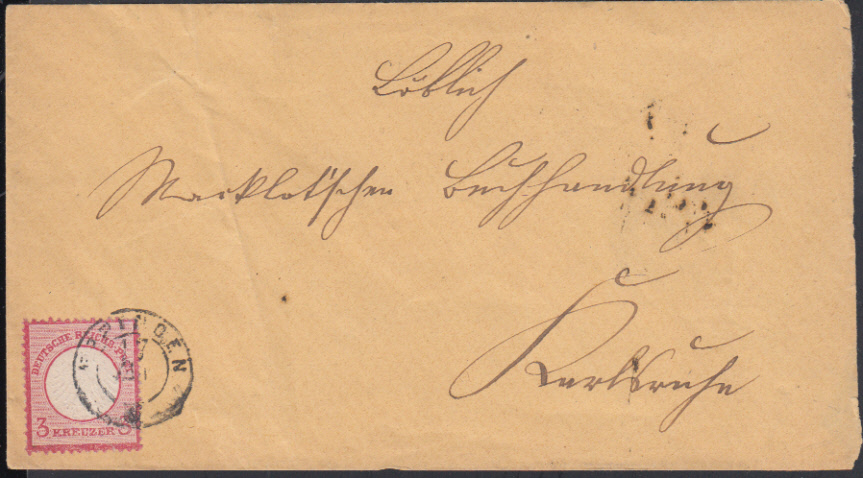 Löblich
Marklot'schen Buchhandlung
Karlsruhe
DEUTSCHE REICHS-POST
3 KREUZER 3